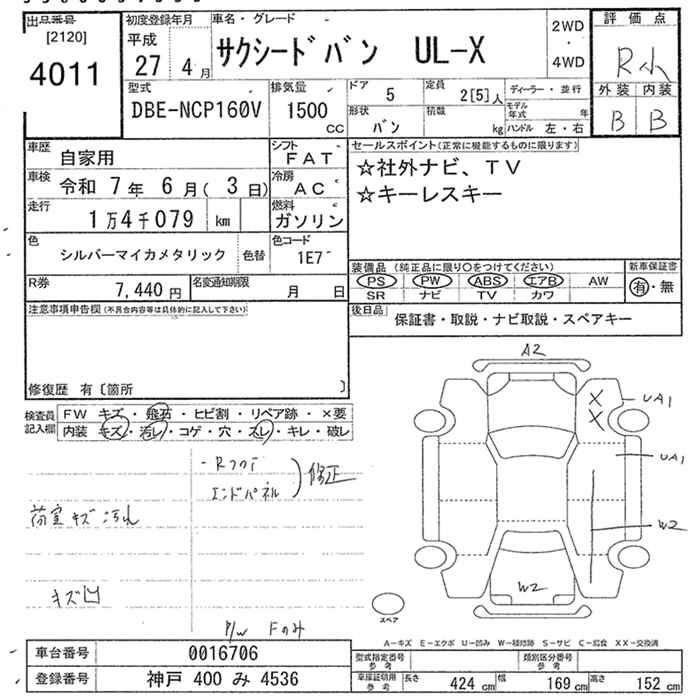 出品番号 初度登録年月 車名・グレード 2WD・4WD 評価点
[2120]
4011
平成 27 4月
サクシードバン UL-X
R小
外装 内装
B B
型式 排気量 ドア 定員 ディーラー・並行
DBE-NCP160V 1500 CC 5 2[5]人
形状 積載 モデル年式 年
バン kg ハンドル 左・右
車歴 自家用 シフト FAT
車検 令和 7年 6月(3日) 冷房 AC
走行 1万4千079 km 燃料 ガソリン
色 シルバーマイカメタリック 色替 色コード 1E7
R券 7,440円 名変通知期限 月 日
セールスポイント(正常に機能するものに限ります)
☆社外ナビ、TV
☆キーレスキー
装備品 (純正品に限り〇をつけてください) 新車保証書
PS PW ABS エアB AW 有・無
SR ナビ TV カワ
後日品 保証書・取説・ナビ取説・スペアキー
注意事項申告欄(不具合内容等は具体的に記入して下さい)
修復歴 有〔箇所 〕
検査員記入欄 FW キズ・飛石・ヒビ割・リペア跡・×要
内装 キズ・汚レ・コゲ・穴・スレ・キレ・破レ
・Rフロア
エンドパネル
修正
荷室キズ汚れ
キズ凹
P/W Fのみ
A2
X
X
UA1
UA1
W2
W2
スペア
A-キズ E-エクボ U-凹み W-補修跡 S-サビ C-腐食 XX-交換済
車台番号 0016706
登録番号 神戸 400 み 4536
型式指定番号 参考 類別区分番号 参考
車庫証明用 参考 長さ 424 cm 幅 169 cm 高さ 152 cm